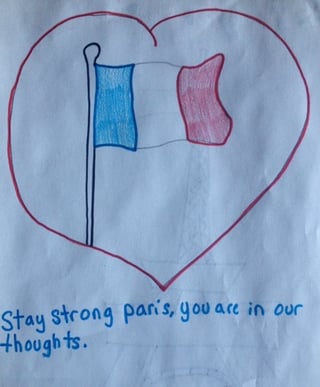 Stay strong paris, you are in our
thoughts.